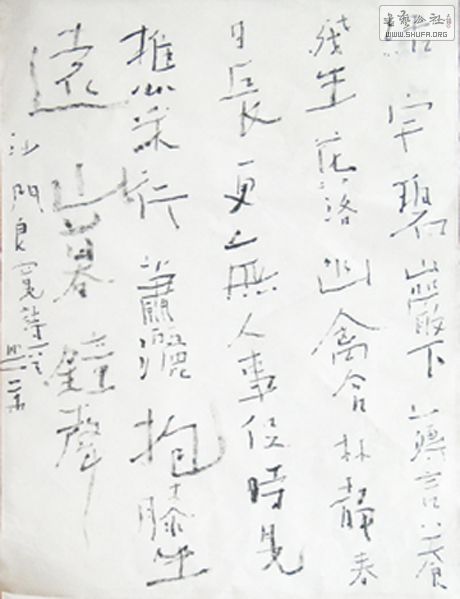 書藝公社
WWW.SHUFA.ORG
結宇碧巖下薄言養
殘生花落幽禽含林靜春
日長更無人事但時見
樵采行蕭灑抱膝坐
遠山暮鐘聲
沙門良寬詩